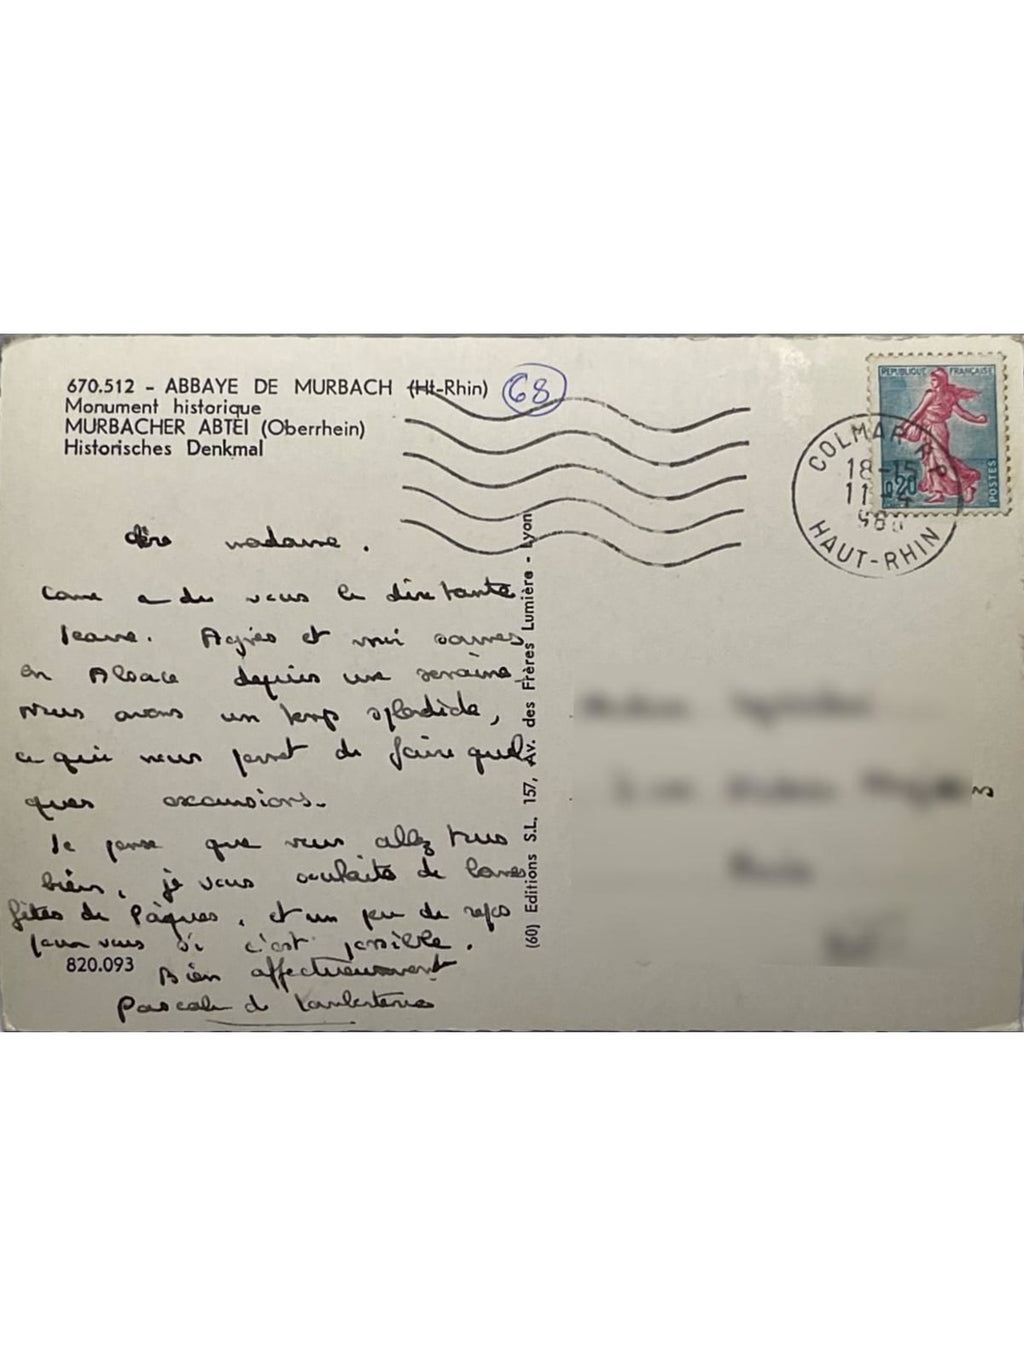 670.512 - ABBAYE DE MURBACH (Ht-Rhin)
68
Monument historique
MURBACHER ABTEI (Oberrhein)
Historisches Denkmal
REPUBLIQUE FRANÇAISE
POSTES
0,20
COLMAR R.P.
18-15
11-4
HAUT-RHIN
madame.
a du vous le dire tante
Jeanne. Agnès et moi sommes
en Alsace depuis une semaine.
nous avons un temps splendide,
ce qui nous permet de faire quel
ques excursions.
Je pense que vous allez tous
bien, je vous souhaite de bonnes
fêtes de Pâques, et un peu de repos
pour vous si c'est possible.
Bien affectueusement
Pascale de
820.093
(60) Editions S.L. 157, Av. des Frères Lumière - Lyon